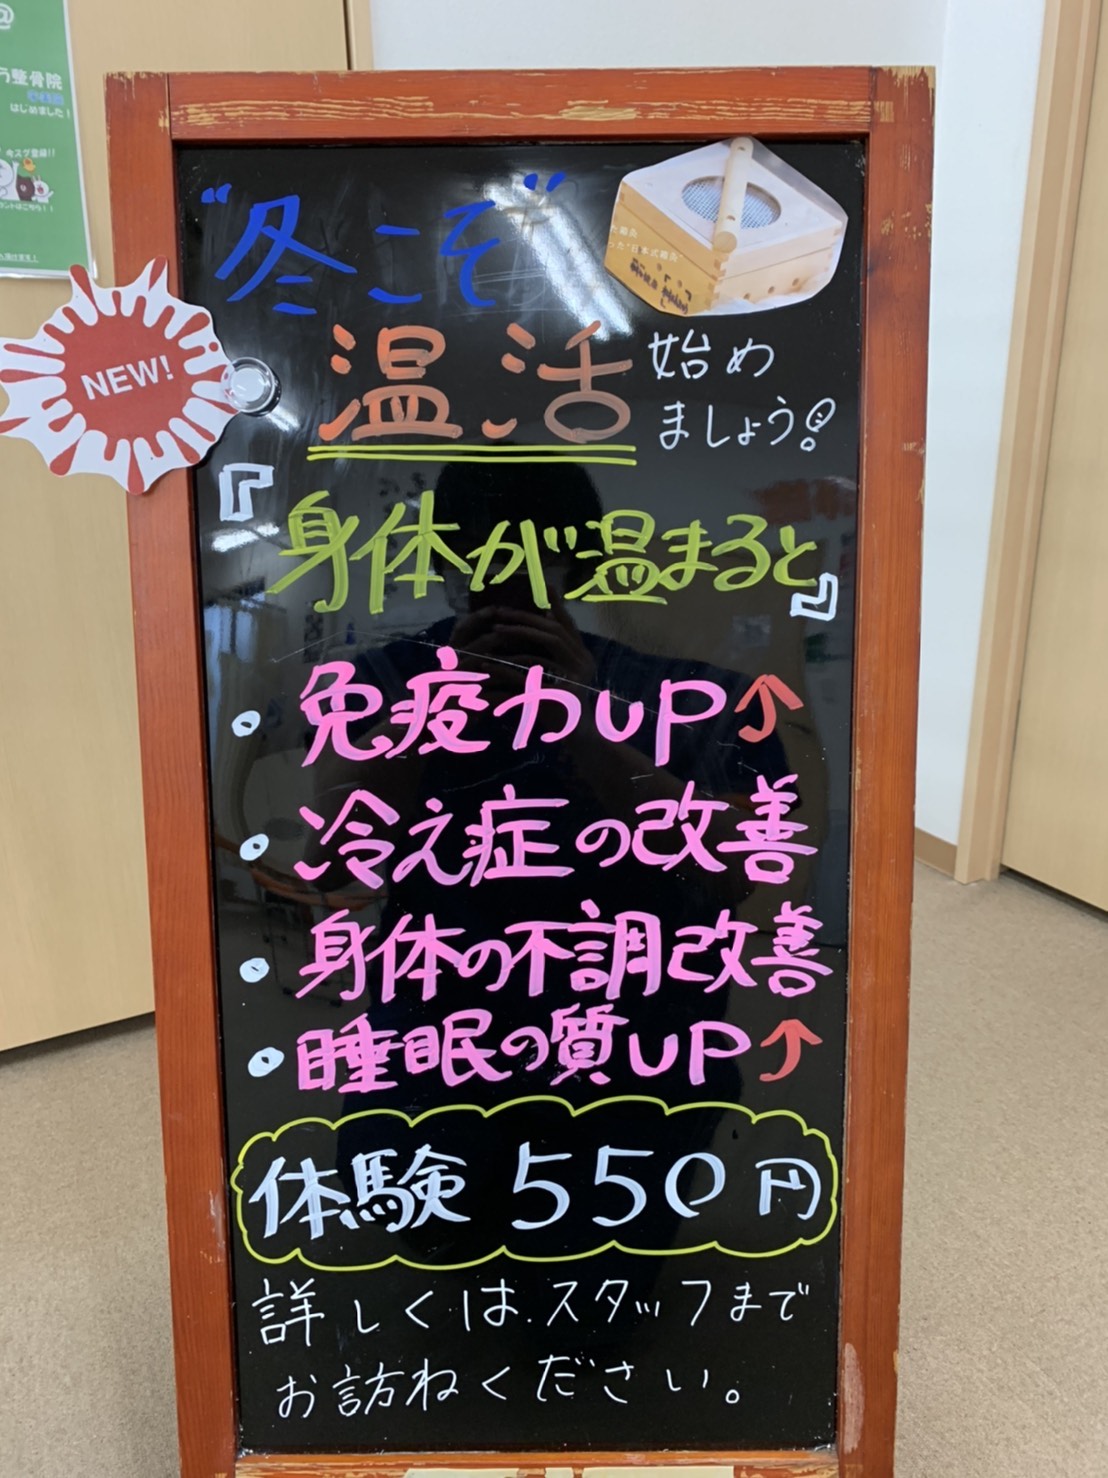 @
う整骨院
はじめました!
今スグ登録!!
NEW!
"冬こそ"
温活 始め
ましょう!
『身体が温まると』
・免疫力UP↑
・冷え症の改善
・身体の不調改善
・睡眠の質UP↑
体験 550円
詳しくは、スタッフまで
お訪ねください。